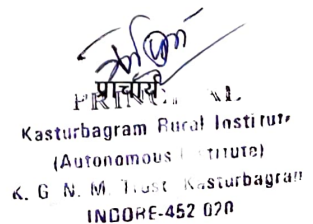 प्राचार्य
PRINC AL
Kasturbagram Rural Institute
(Autonomous Institute)
K. G. N. M. Trust Kasturbagram
INDORE-452 020